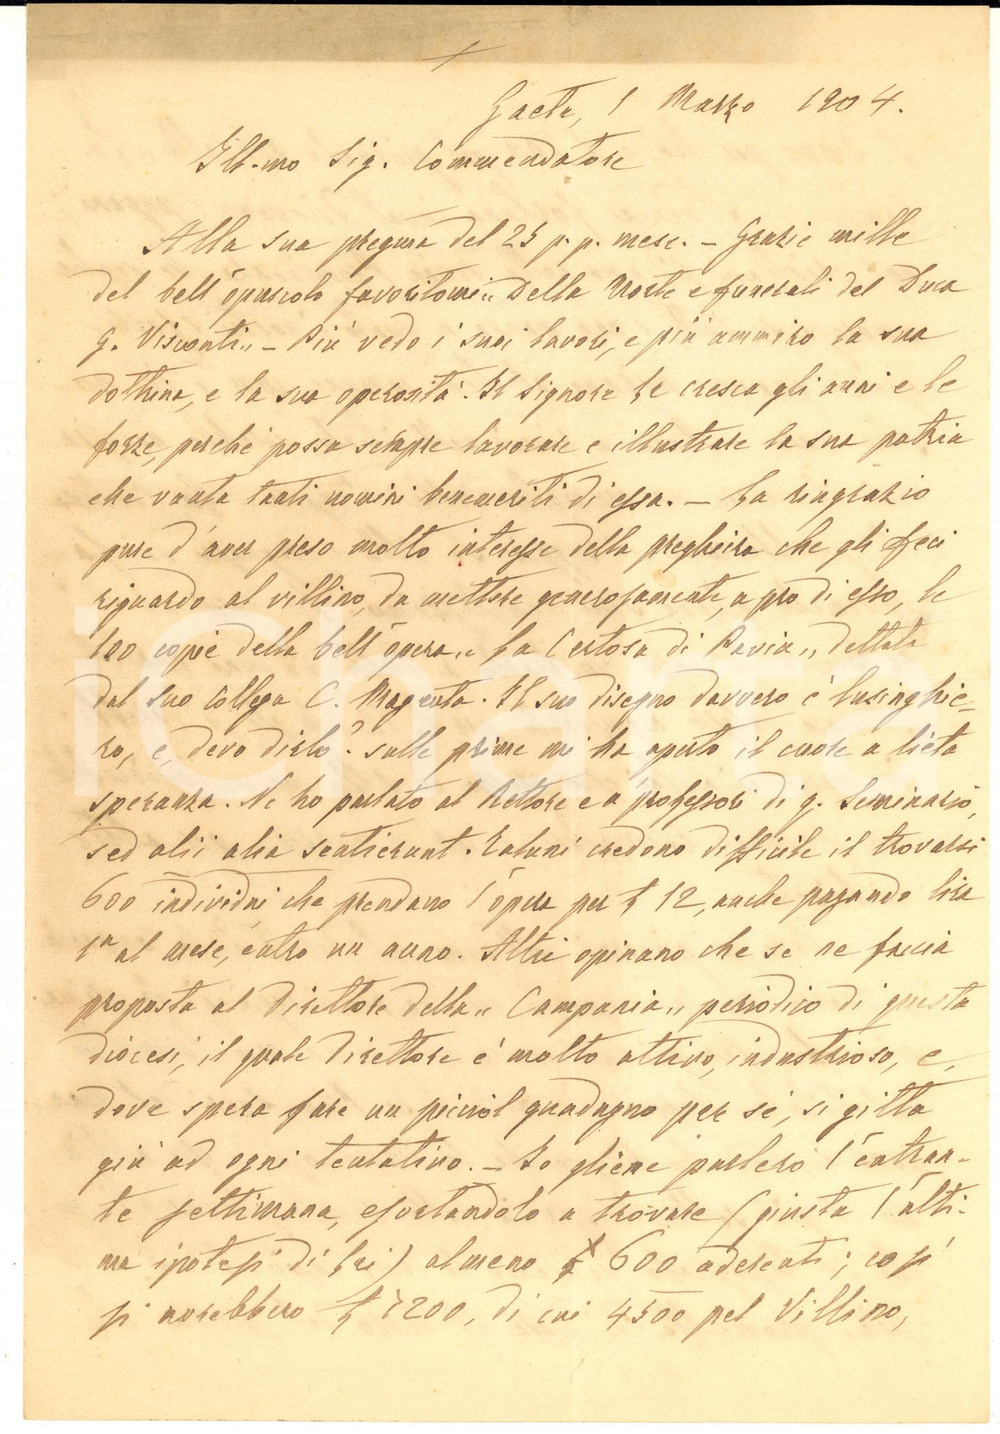 Gaeta, 1 Marzo 1904.
Ill.mo Sig. Commendatore
Alla sua pregma del 25 p. p. mese. – Grazie mille
del bell'opuscolo favoritomi „ Della Morte e funerali del Duca
G. Visconti „ – Più vedo i suoi lavori, e più ammiro la sua
dottrina, e la sua operosità. Il Signore Le cresca gli anni e le
forze, perché possa sempre lavorare e illustrare la sua patria
che vanta tanti uomini benemeriti di essa. – La ringrazio
pure d'aver preso molto interesse della preghiera che gli feci
riguardo al villino, da mettere generosamente, a pro di esso, le
600 copie della bell'opera „ La Certosa di Pavia „ dettata
dal suo collega C. Magenta. Il suo disegno davvero è lusinghie-
ro, e, devo dirlo? sulle prime mi ha aperto il cuore a lieta
speranza. Ne ho parlato al Rettore e a' professori di q. Seminario,
sed alii alia senserunt. Taluni credono difficile il trovarsi
600 individui che prendano l'opera per £ 12, anche pagando lira
1a al mese, entro un anno. Altri opinano che se ne faccia
proposta al direttore della „ Campania „ periodico di questa
diocesi, il quale direttore è molto attivo, industrioso, e,
dove spera fare un picciol guadagno per sé, si gitta
giù ad ogni tentativo. – Io gliene parlerò l'entran-
te settimana, esortandolo a trovare (giusta l'ulti-
ma ipotesi di Lei) almeno 600 aderenti; così
si avrebbero £ 7200, di cui 4500 pel Villino,
iChand